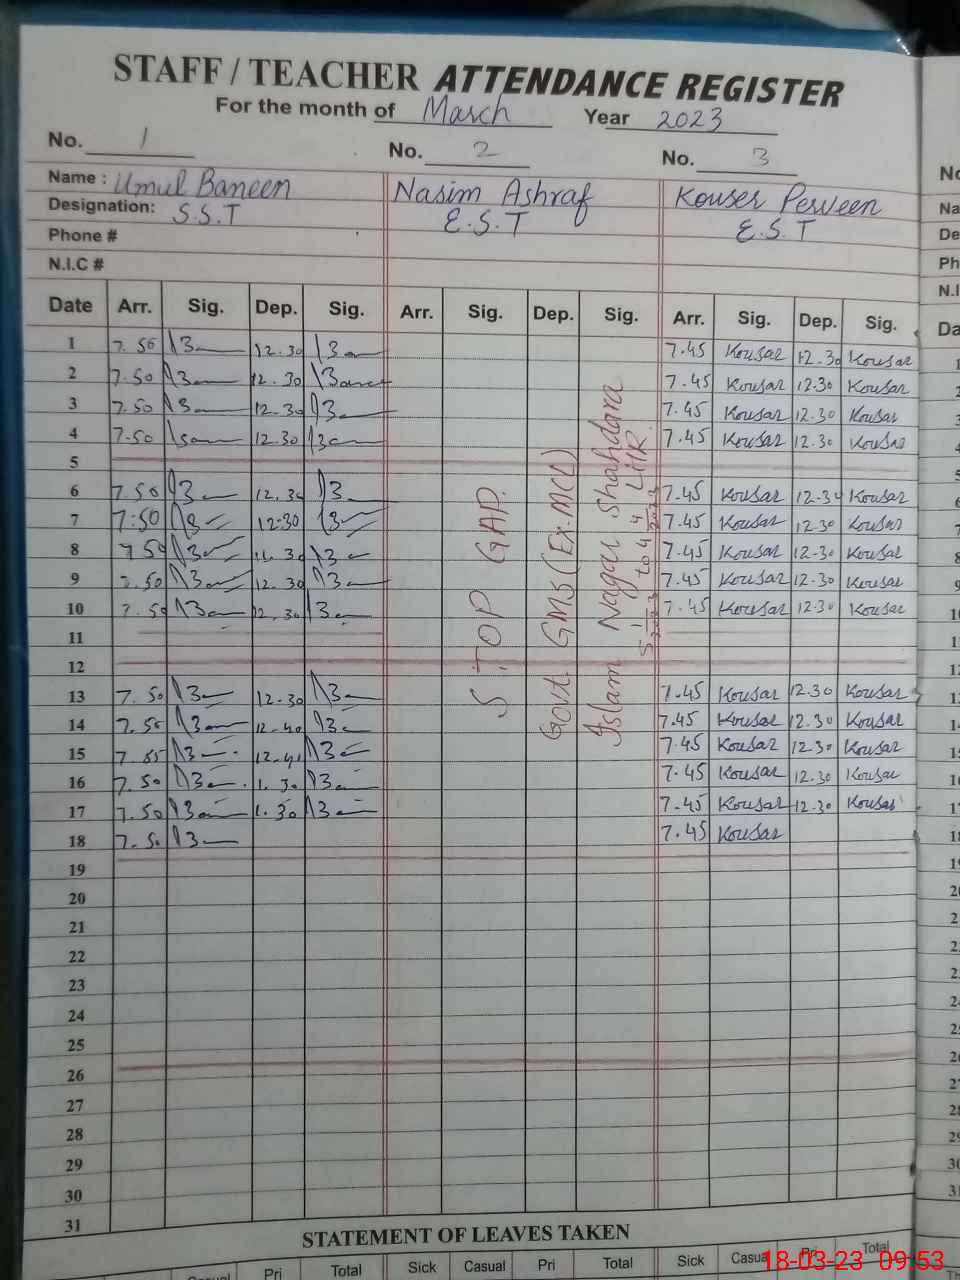 STAFF / TEACHER ATTENDANCE REGISTER
For the month of March Year 2023
No. 1 No. 2 No. 3
Name : Umul Baneen Nasim Ashraf Kouser Perveen
Designation: S.S.T E.S.T E.S.T
Phone #
N.I.C #
Date Arr. Sig. Dep. Sig. Arr. Sig. Dep. Sig. Arr. Sig. Dep. Sig.
1 7.50 12.30 7.45 Kousar 12.30 Kousar
2 7.50 12.30 7.45 Kousar 12.30 Kousar
3 7.50 12.30 7.45 Kousar 12.30 Kousar
4 7.50 12.30 7.45 Kousar 12.30 Kousar
5
6 7.50 12.30 7.45 Kousar 12.30 Kousar
7 7:50 12:30 7.45 Kousar 12.30 Kousar
8 7 50 7.45 Kousar 12.30 Kousar
9 7.50 12.30 7.45 Kousar 12.30 Kousar
10 7.50 12.30 7.45 Kousar 12.30 Kousar
11
12
13 7.50 12.30 7.45 Kousar 12.30 Kousar
14 7.50 12.40 7.45 Kousar 12.30 Kousar
15 7.55 7.45 Kousar 12.30 Kousar
16 7.50 1.30 7.45 Kousar 12.30 Kousar
17 7.50 1.30 7.45 Kousar 12.30 Kousar
18 7.50 7.45 Kousar
19
20
21
22
23
24
25
26
27
28
29
30
31
STOP GAP.
Govt. GMS (Ex.MCL)
Islam Nagar Shahdara
LHR.
STATEMENT OF LEAVES TAKEN
Casual Pri Total Sick Casual Pri Total Sick Casual Pri Total
18-03-23 09:53